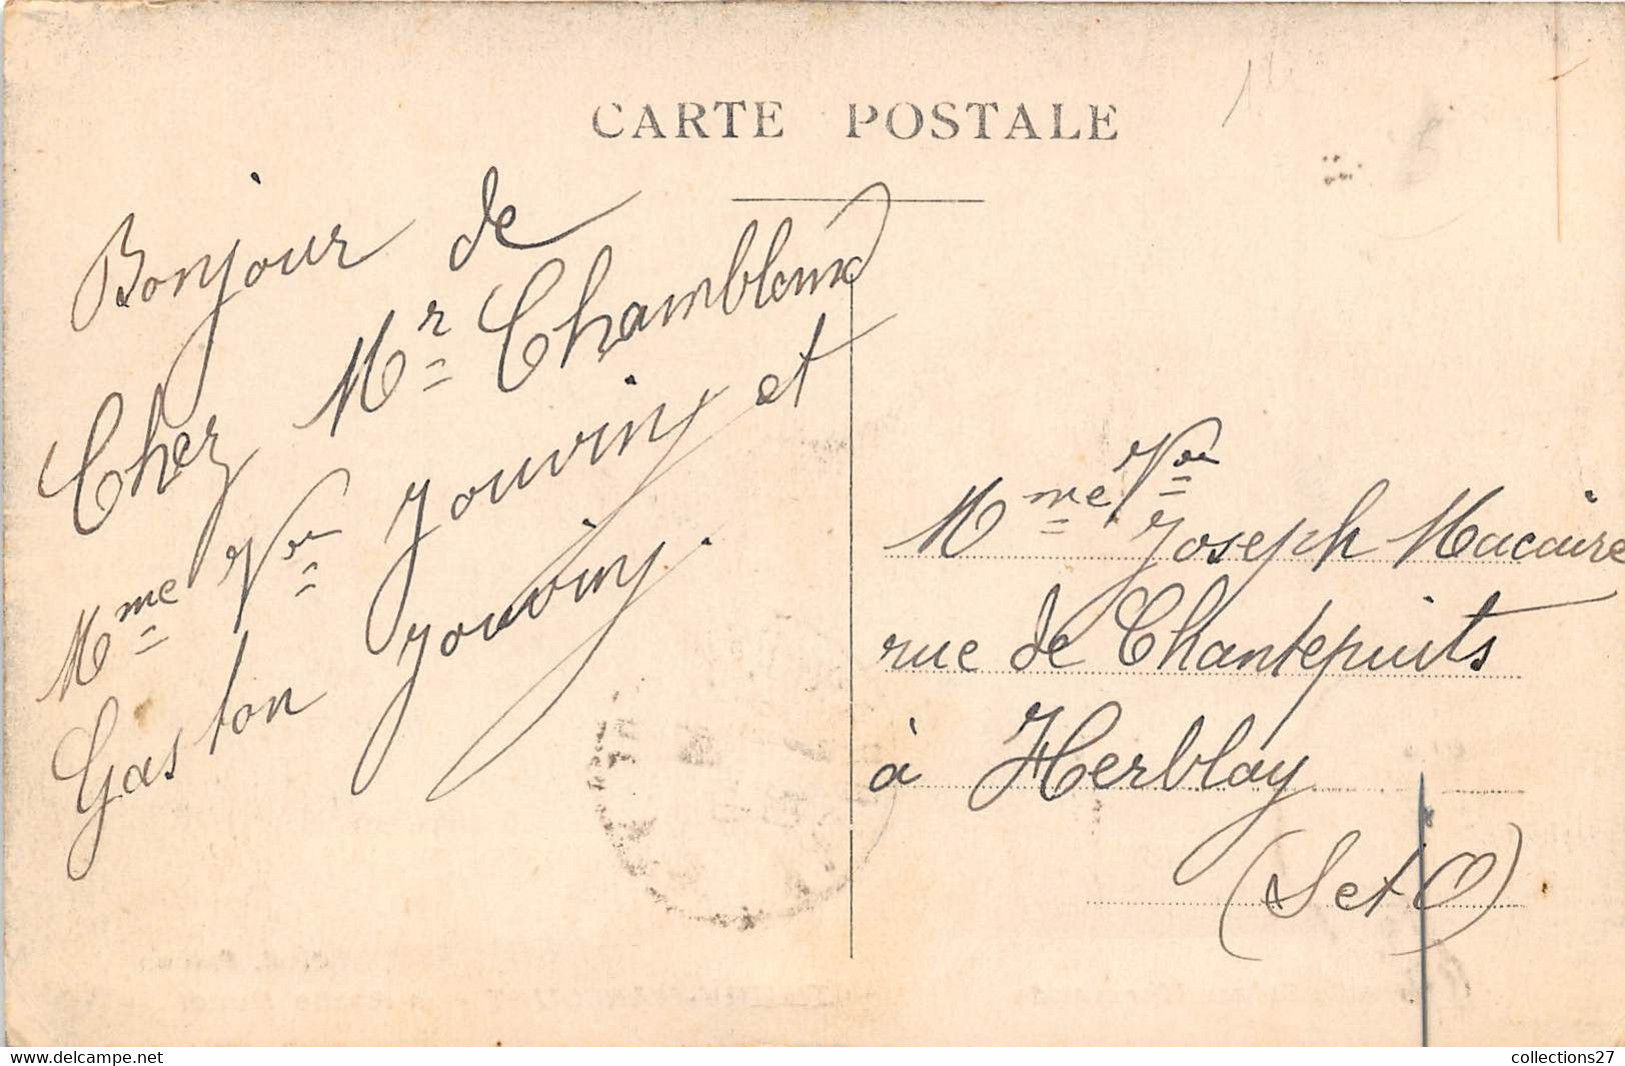 CARTE POSTALE
Bonjour de
Chez Mr Chambloux
Mme Vve Jouviny et
Gaston Jouviny.
Mme Vve Joseph Macaire
rue de Chantepuits
à Herblay
(S et O)
collections27